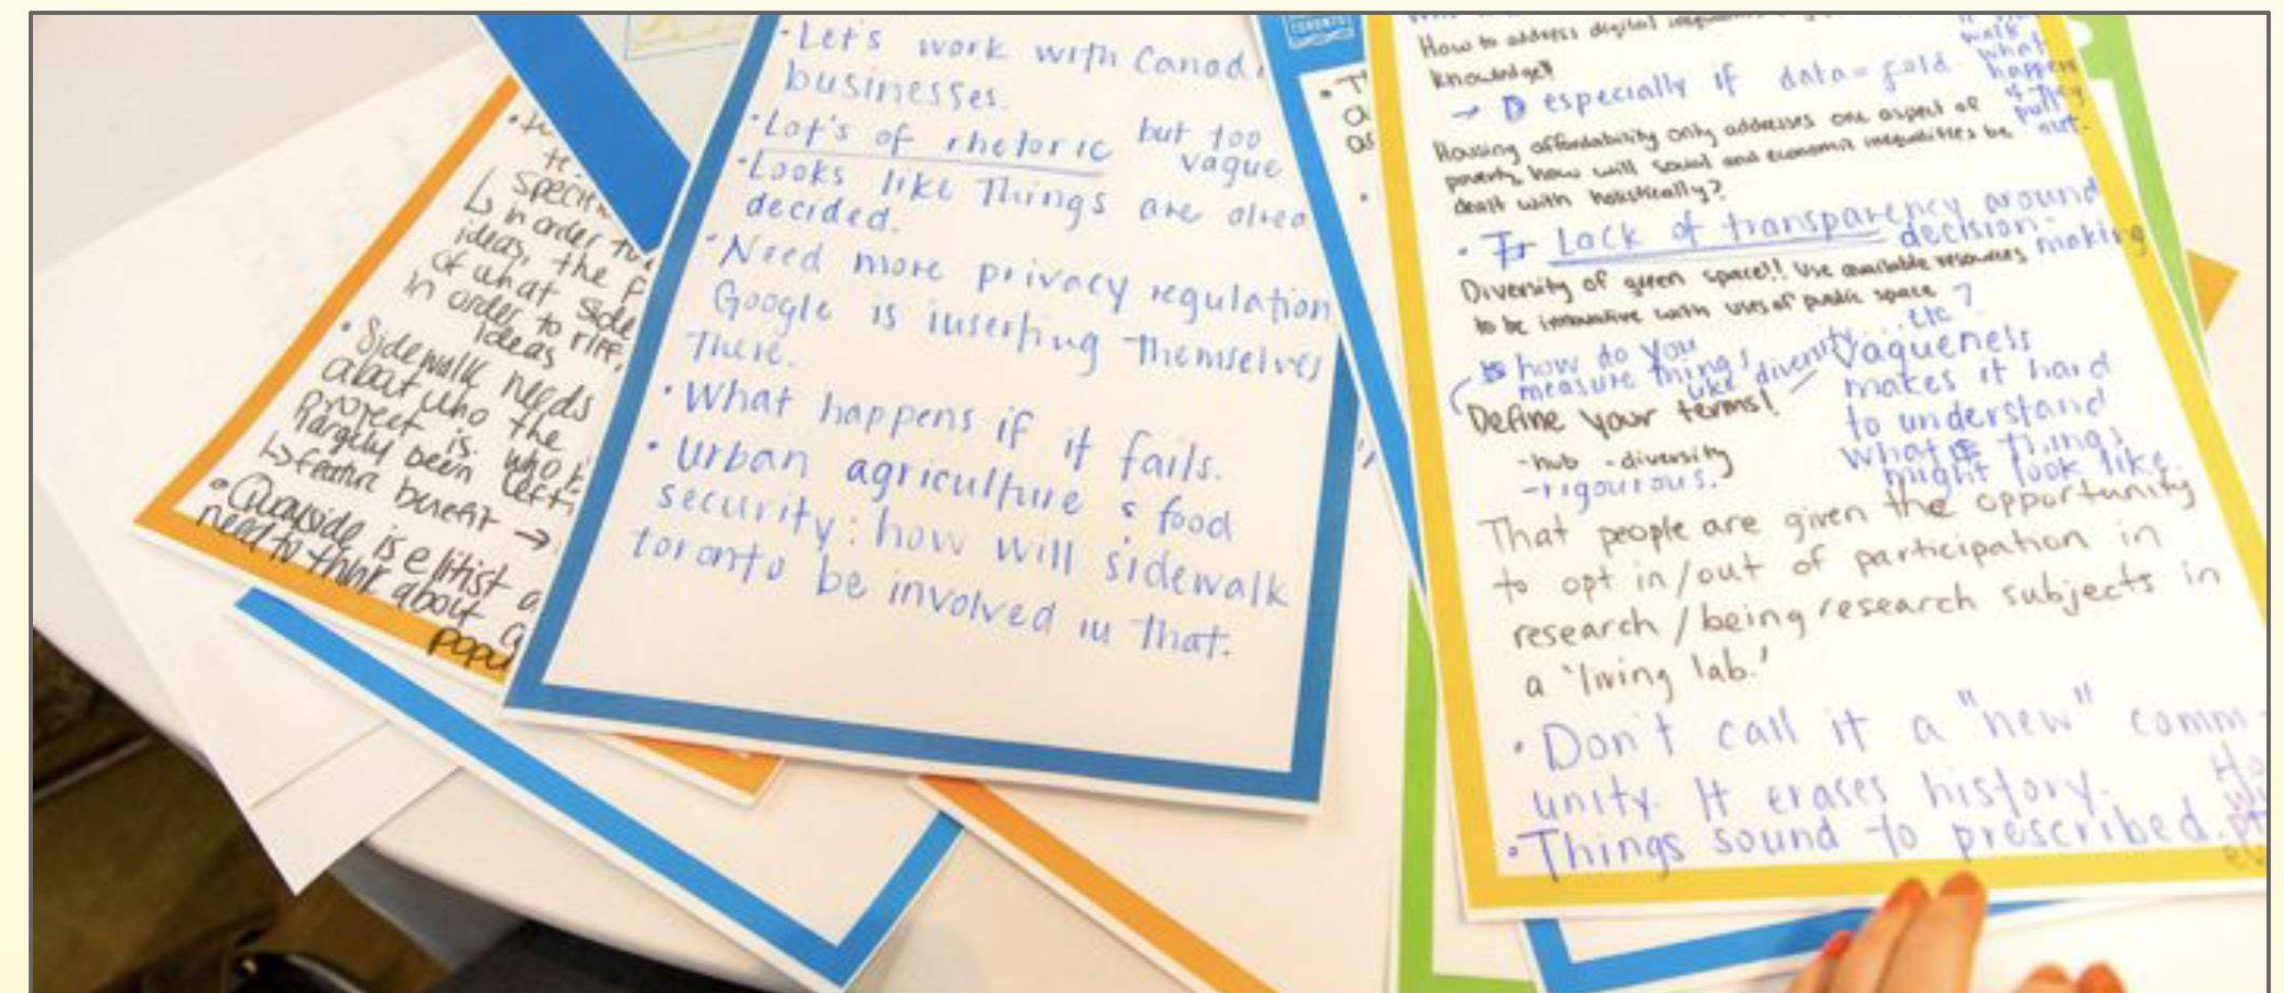 specific
↳ in order to
ideas, the
of what side
in order to riff,
ideas
• Sidewalk needs
about who the
project is. who
largely been left
↳ feature benefit →
• Quayside is elitist a
need to think about
popu
• Let's work with Canad
businesses.
• Lot's of rhetoric but too
vague
• Looks like Things are alrea
decided.
• Need more privacy regulation
Google is inserting Themselves
There.
• What happens if it fails.
• Urban agriculture & food
security: how will sidewalk
toronto be involved in that.
TORONTO
How to address digital
knowledge?
→ especially if data = gold
walk
what
happens
if they
pull
out.
Housing affordability only addresses one aspect of
poverty, how will social and economic inequalities be
dealt with holistically?
• Lack of transparency around
decision making
Diversity of green space!! Use available resources
to be innovative with uses of public space
etc?
↳ how do you
measure things
like diversity...
Define your terms!
- hub - diversity
- rigourous.
Vagueness
makes it hard
to understand
what things
might look like.
That people are given the opportunity
to opt in/out of participation in
research / being research subjects in
a 'living lab.'
• Don't call it a "new" comm-
unity. It erases history.
• Things sound to prescribed.